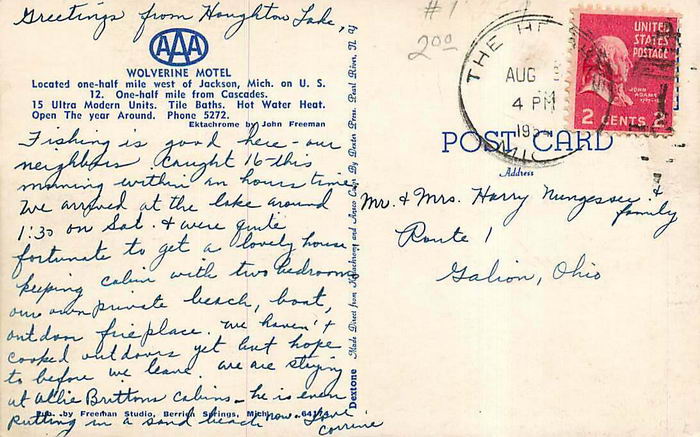 Greetings from Houghton Lake,
AAA
WOLVERINE MOTEL
Located one-half mile west of Jackson, Mich. on U. S.
12. One-half mile from Cascades.
15 Ultra Modern Units. Tile Baths. Hot Water Heat.
Open The year Around. Phone 5272.
Ektachrome by John Freeman
Fishing is good here - our
neighbors caught 16 this
morning within an hours time.
We arrived at the lake around
1:30 on Sat. & were quite
fortunate to get a lovely house
keeping cabin with two bedrooms,
our own private beach, boat,
outdoor fireplace. We haven't
cooked outdoors yet but hope
to before we leave. We are staying
at Allie Brittons cabins - he is even
putting in a sand beach now. Love
Corrine
Pub. by Freeman Studio, Berrien Springs, Mich.
Dextone Made Direct from Kodachrome and Ansco Color By Dexter Press, Pearl River, N. Y.
#1
200
THE
AUG
4 PM
MICH
UNITED
STATES
POSTAGE
JOHN
ADAMS
2 CENTS 2
POST CARD
Address
Mr. & Mrs. Harry Nungesser &
family
Route 1
Galion, Ohio